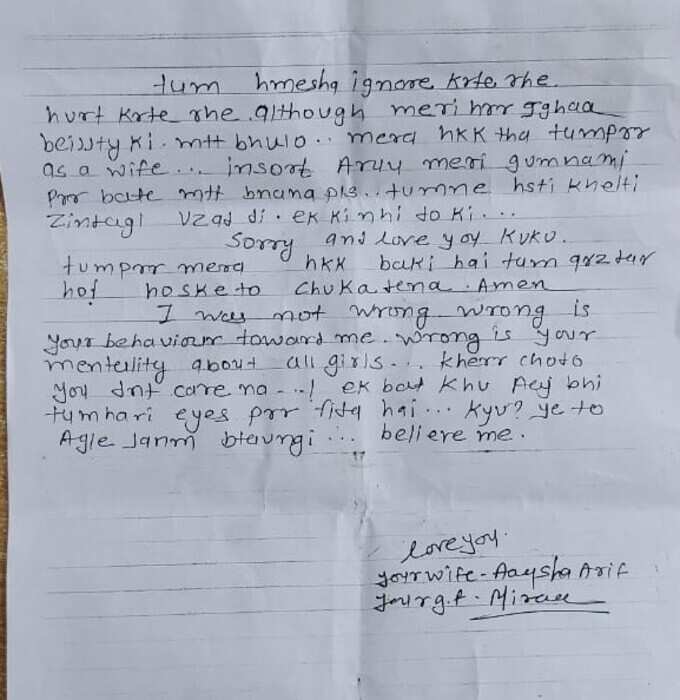 tum hmesha ignore krte rhe.
hurt krte rhe. although meri hrr jghaa
beissty ki. mtt bhulo.. mera hkk tha tumprr
as a wife... insort Aruu meri gumnami
prr bate mtt bnana pls.. tumne hsti khelti
zindagi uzad di. ek ki nhi do ki...
Sorry and love you Kuku.
tumprr mera hkk baki hai tum qrzdar
ho! hoske to chuka dena. Amen
I was not wrong wrong is
your behaviour toward me. wrong is your
mentality about all girls... kherr chodo
you dnt care na ...! ek bat khu Aej bhi
tumhari eyes prr fida hai... kyu? ye to
Agle Janm btaungi... believe me.
love you.
your wife - Aaysha Arif
your g.f.